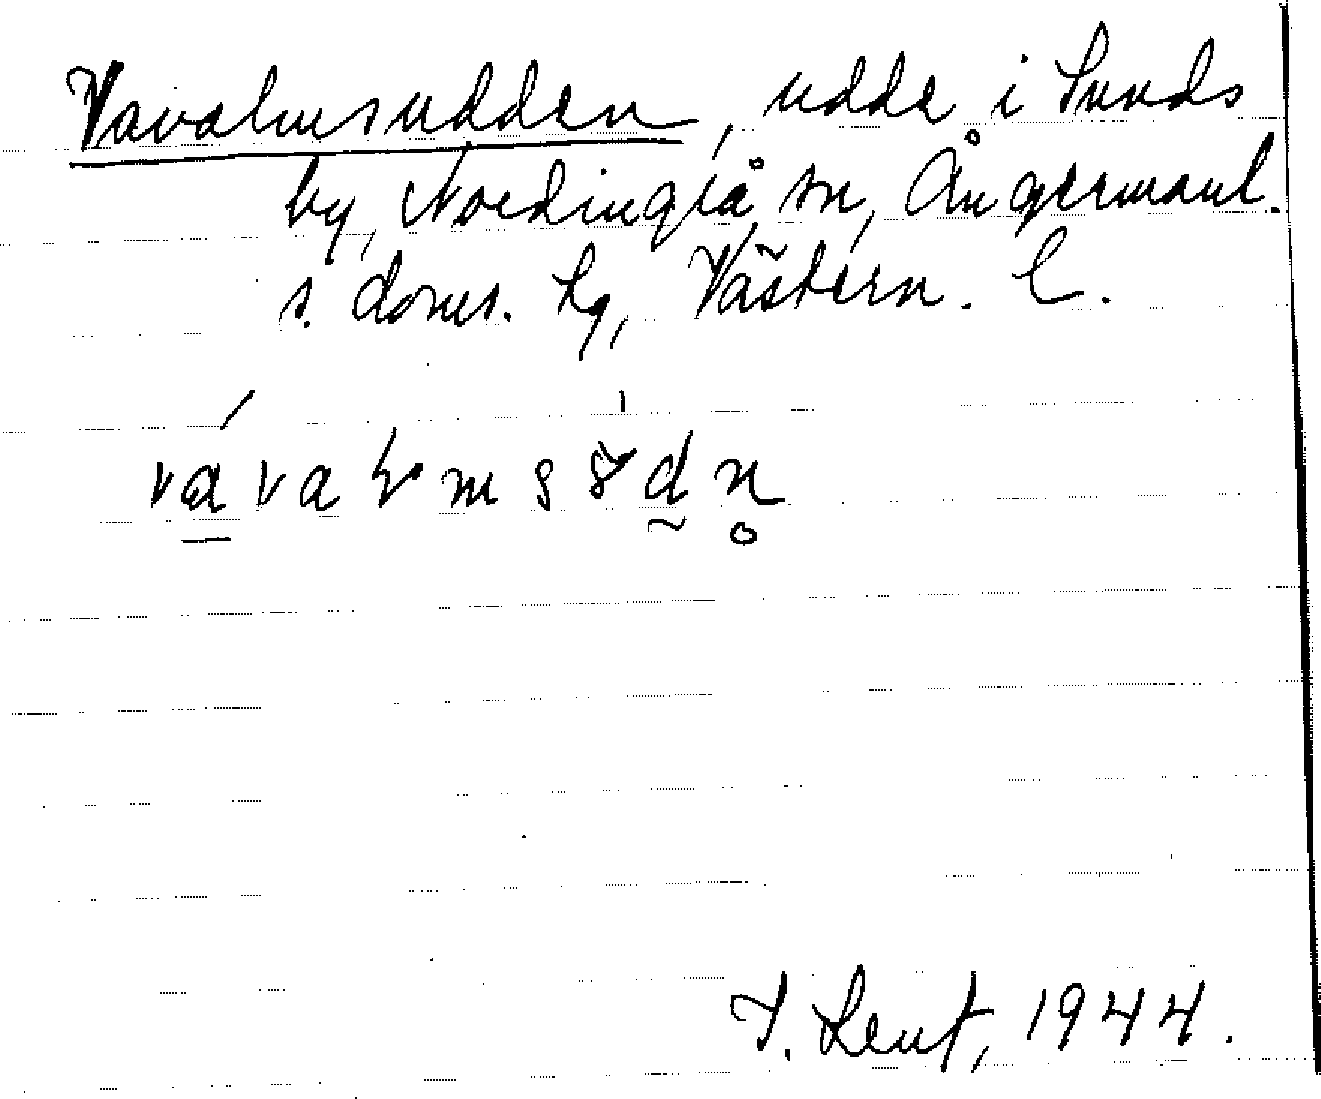 Vavalmsudden, udde i Sunds
by, Nordingrå sn, Ångermanl.
s. doms. hg, Västern. l.
J. Lent, 1944.